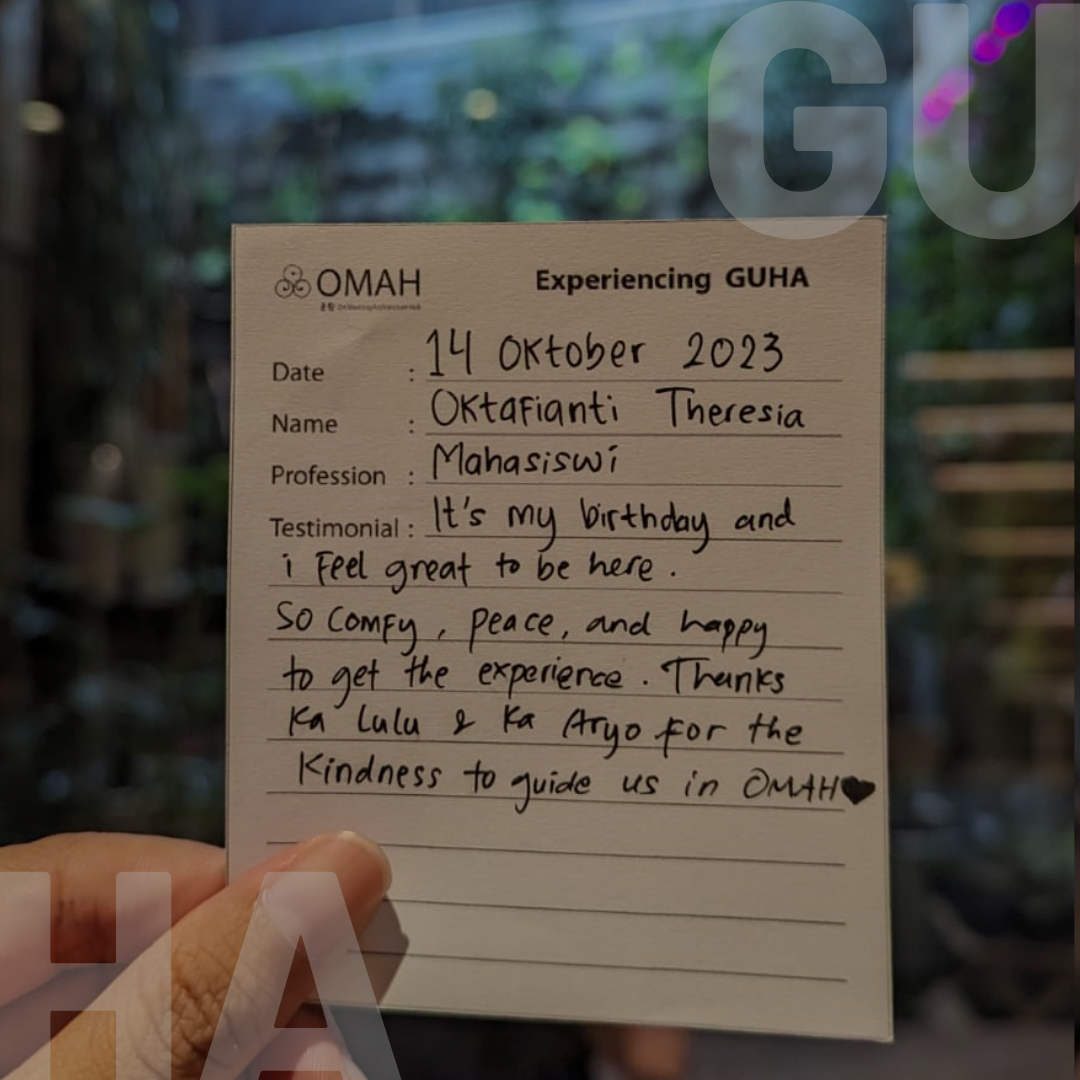 GU
OMAH
Experiencing GUHA
Date : 14 Oktober 2023
Name : Oktafianti Theresia
Profession : Mahasiswi
Testimonial : It's my birthday and
i feel great to be here.
So comfy, peace, and happy
to get the experience. Thanks
Ka Lulu & Ka Aryo for the
kindness to guide us in OMAH♥
HA